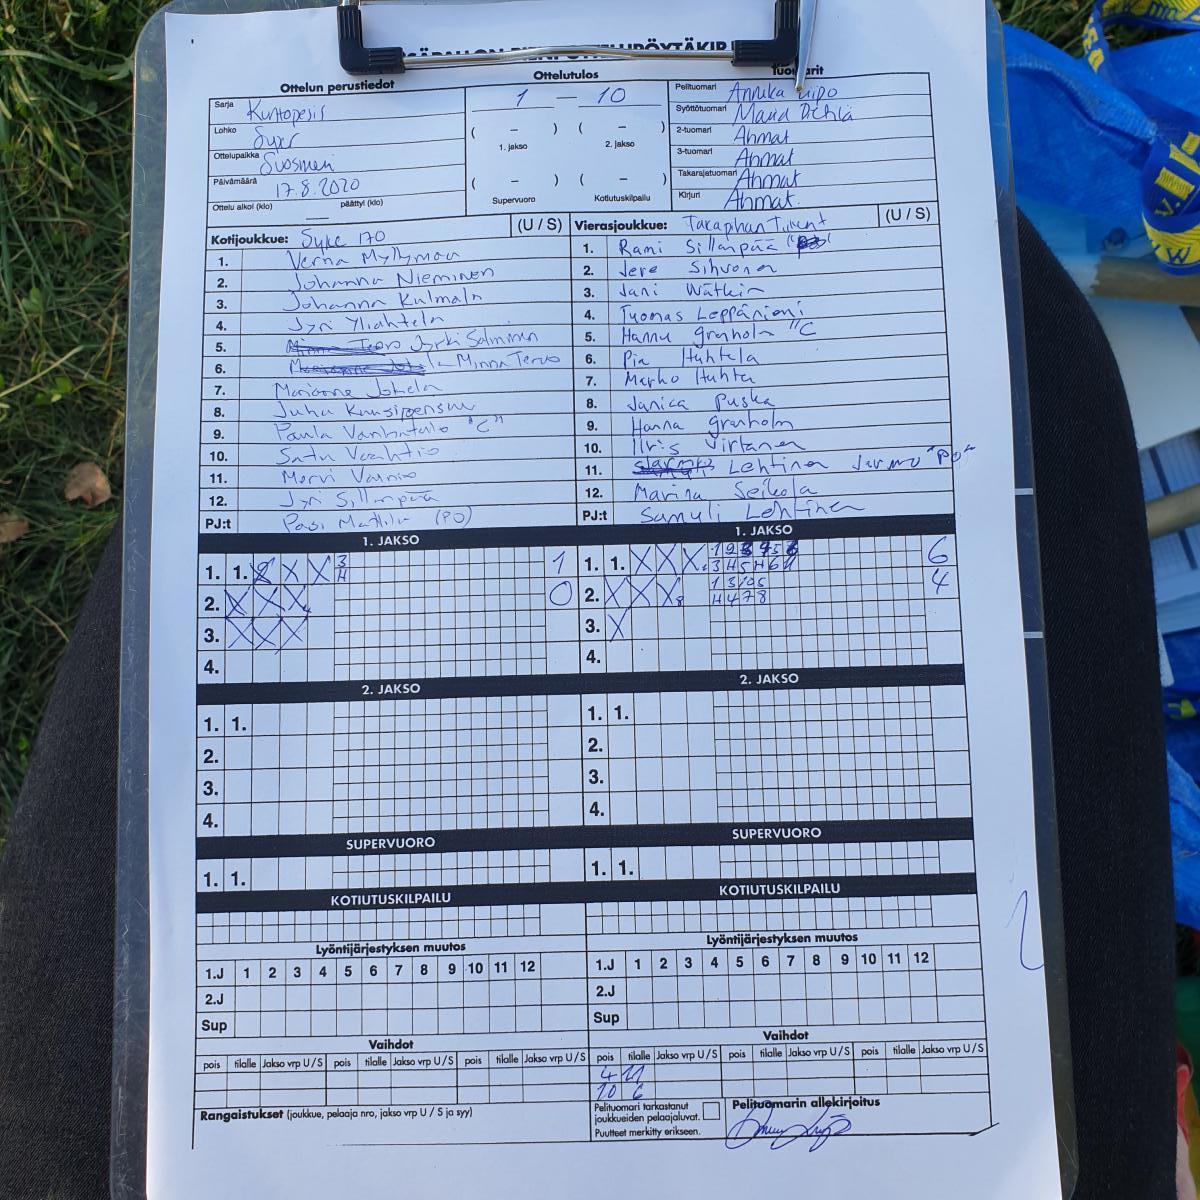 Ottelun perustiedot
Ottelutulos
Sarja Kuntopesis
Lohko
Ottelupaikka
Päivämäärä 17.8.2020
Ottelu alkoi (klo) päättyi (klo)
1 — 10
( – ) ( – )
1. jakso 2. jakso
( – ) ( – )
Supervuoro Kotiutuskilpailu
Pelituomari Annika
Syöttötuomari
2-tuomari Ahmat
3-tuomari Ahmat
Takarajatuomari Ahmat
Kirjuri Ahmat
Kotijoukkue: Syke 170 (U / S)
1. Verna Myllymaa
2. Johanna Nieminen
3. Johanna Kulmala
4. Jyri Yliahtela
5. Jyrki Salminen
6. Minna Tervo
7. Marianne Jokela
8. Juha
9. Paula "C"
10. Satu
11. Mervi
12. Jyri Sillanpää
PJ:t Pasi Mattila (PO)
Vierasjoukkue: (U / S)
1. Rami Sillanpää
2. Jere Sihvonen
3. Jani
4. Tuomas Leppäniemi
5. Hannu Granholm "C
6. Pia Huhtala
7. Marko Huhta
8. Janica Puska
9. Hanna Granholm
10. Iiris Virtanen
11. Lehtinen Jarmo "PO"
12. Marina Seikola
PJ:t Samuli Lehtinen
1. JAKSO
1. 1. X X 3 1
H
2. X X X 0
3. X X X
4.
1. JAKSO
1. 1. X X X 6
2. X X X 4
3. X
4.
2. JAKSO
1. 1.
2.
3.
4.
2. JAKSO
1. 1.
2.
3.
4.
SUPERVUORO
1. 1.
SUPERVUORO
1. 1.
KOTIUTUSKILPAILU
KOTIUTUSKILPAILU
Lyöntijärjestyksen muutos
1.J 1 2 3 4 5 6 7 8 9 10 11 12
2.J
Sup
Lyöntijärjestyksen muutos
1.J 1 2 3 4 5 6 7 8 9 10 11 12
2.J
Sup
Vaihdot
pois tilalle Jakso vrp U / S pois tilalle Jakso vrp U / S pois tilalle Jakso vrp U / S
Vaihdot
pois tilalle Jakso vrp U / S pois tilalle Jakso vrp U / S pois tilalle Jakso vrp U / S
4 11
10 6
Rangaistukset (joukkue, pelaaja nro, jakso vrp U / S ja syy)
Pelituomari tarkastanut
joukkueiden pelaajaluvat.
Puutteet merkitty erikseen.
Pelituomarin allekirjoitus